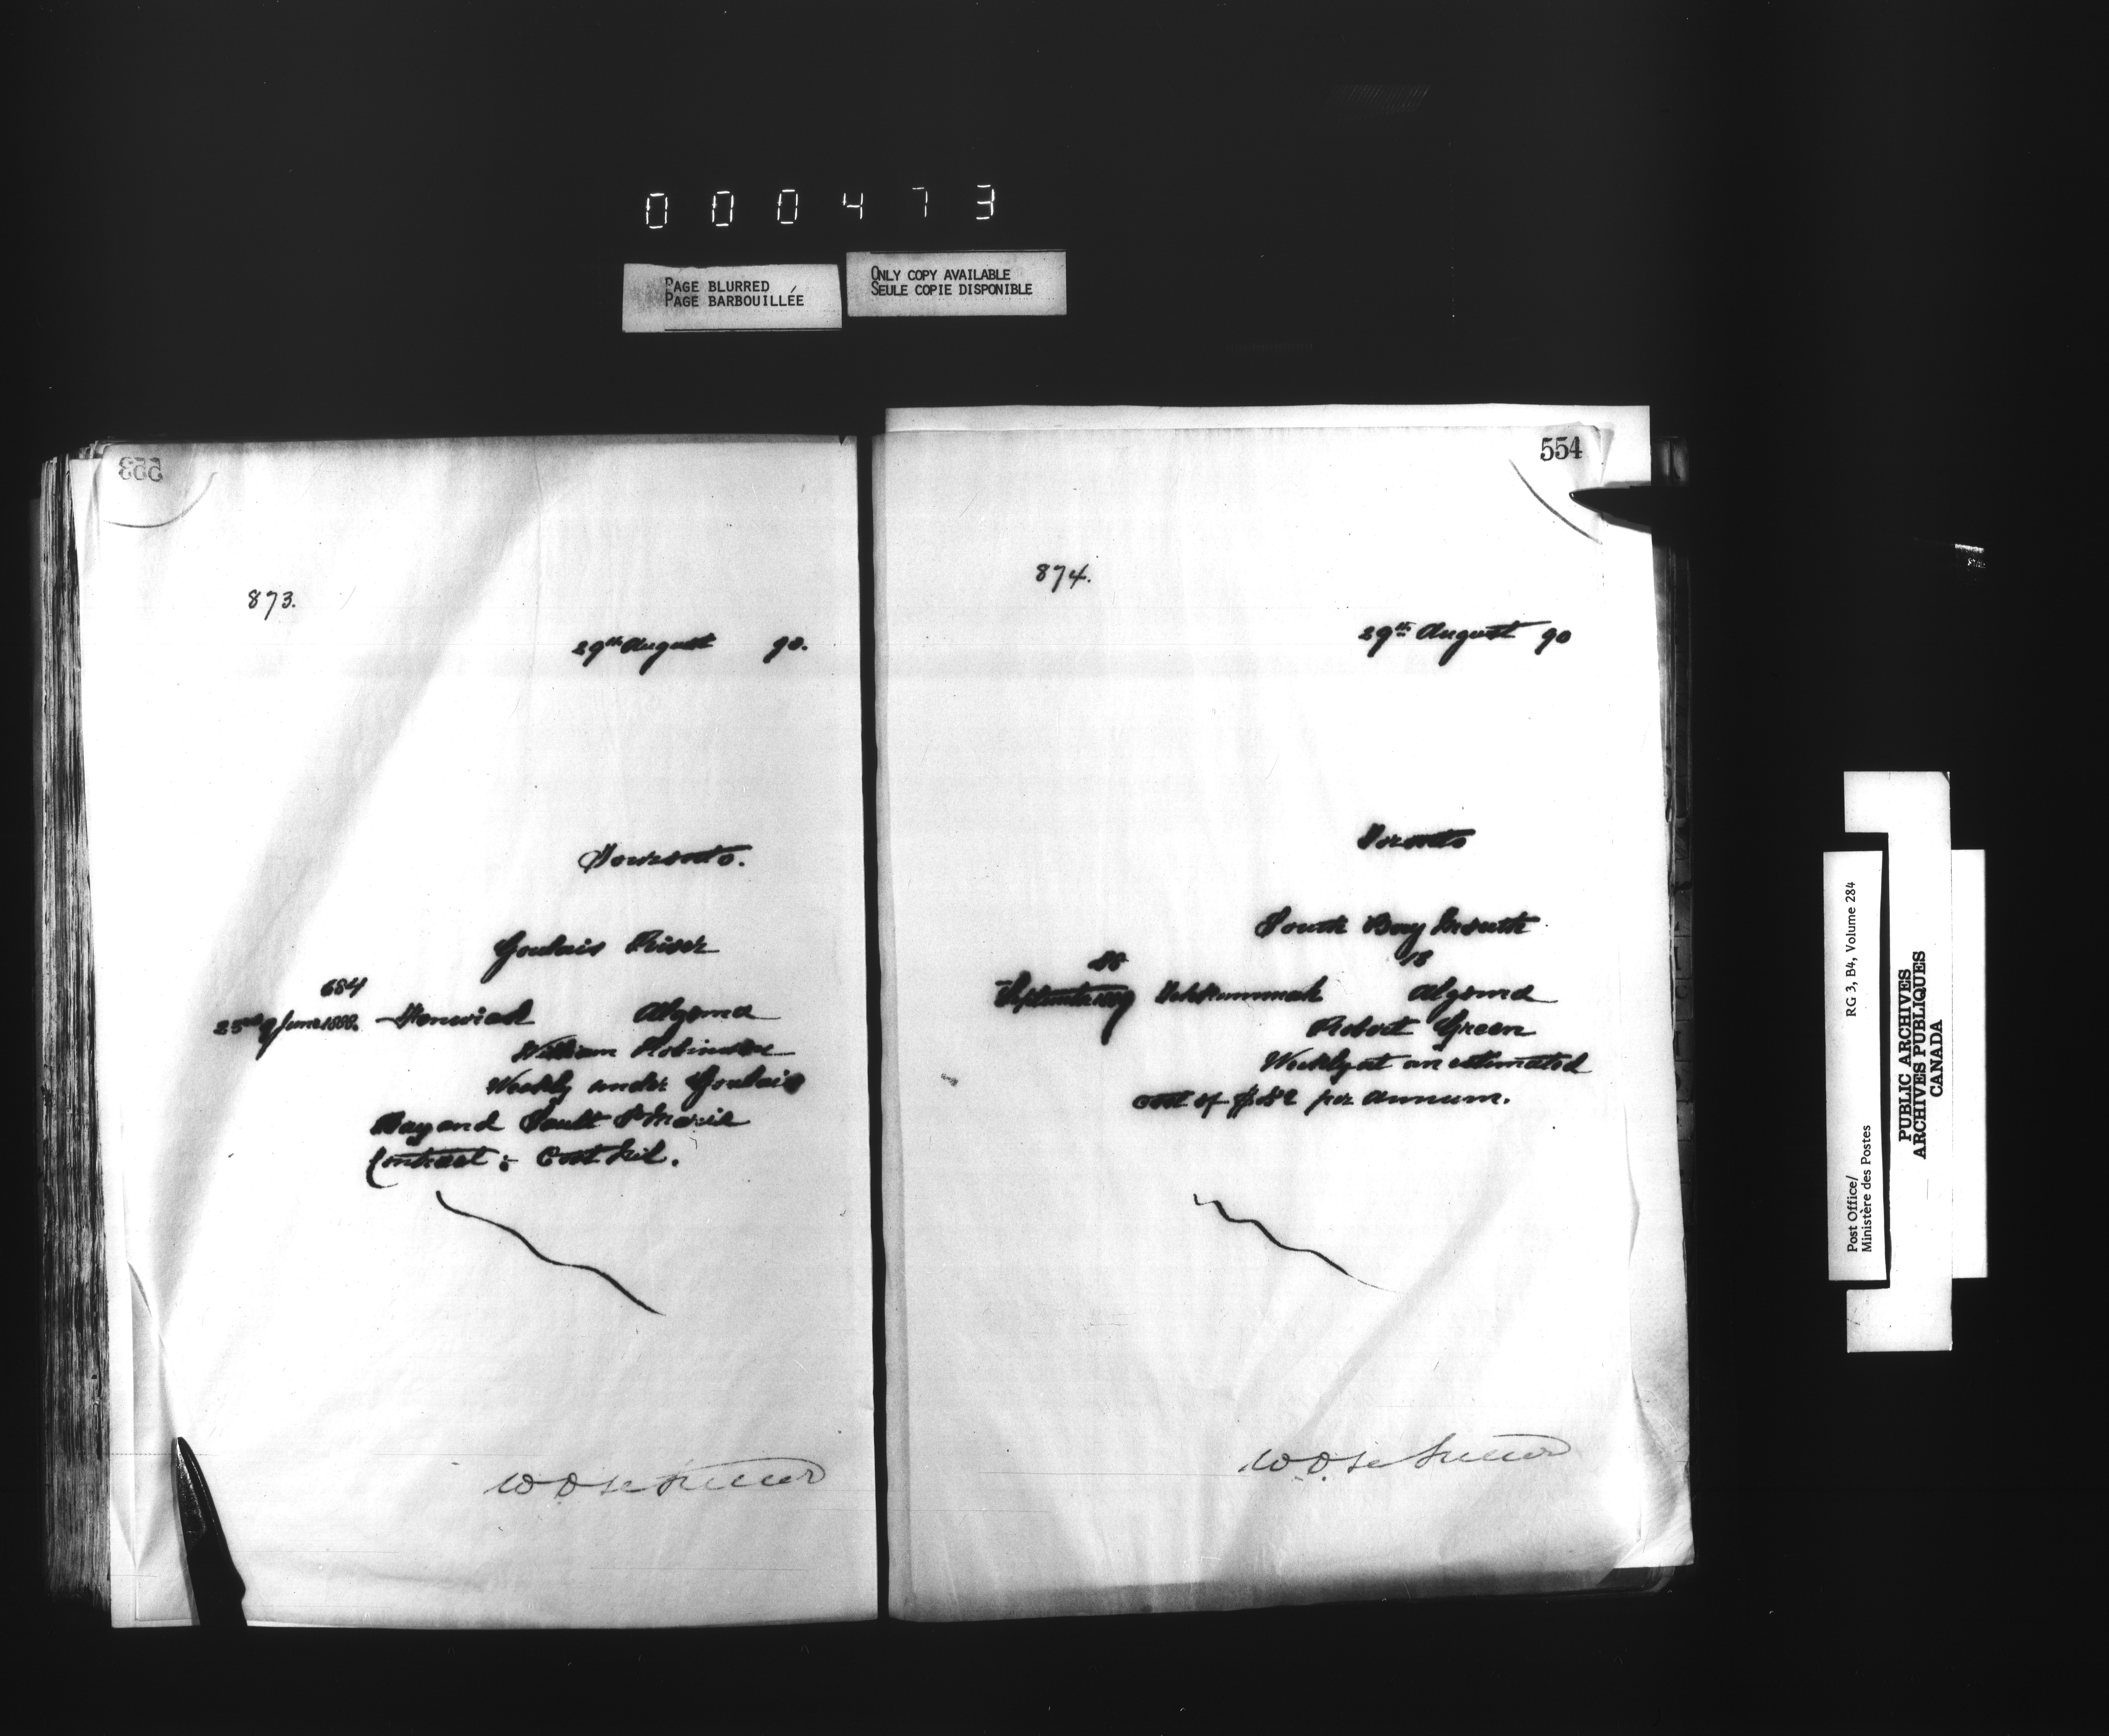 000473
PAGE BLURRED
PAGE BARBOUILLÉE
ONLY COPY AVAILABLE
SEULE COPIE DISPONIBLE
553
873.
29th August 90.
Toronto.
Goulais River
684
25th June 1888. Fenwick Algoma
William Robinson
Weekly under Goulais
Bay and Sault St Marie
Contract; Cost Nil.
554
874.
29th August 90
Toronto
South Bay Mouth
88 18
September 1889 Tehkummah Algoma
Robert Green
Weekly at an estimated
cost of $52 per annum.
Post Office/
Ministère des Postes
RG 3, B4, Volume 284
PUBLIC ARCHIVES
ARCHIVES PUBLIQUES
CANADA